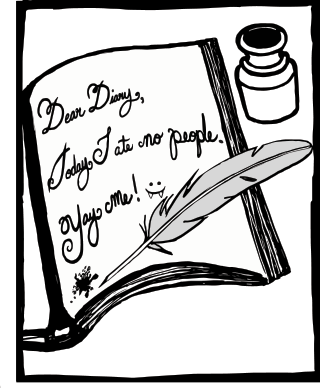 Dear Diary,
Today I ate no people.
Yay me!